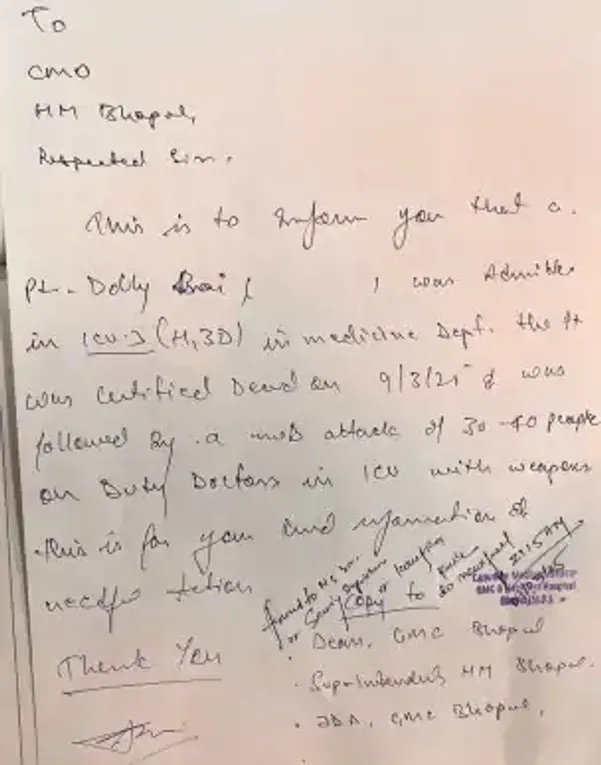 To
CMO
HM Bhopal,
Respected Sir,
This is to inform you that a.
Pt. Dolly Bai (        ) was Admitted
in ICU-3 (H,3D) in medicine Dept. the Pt
was certified Dead on 9/3/25 & was
followed by a mob attack of 30-40 people
on Duty Doctors in ICU with weapons
this is for your kind information &
needful action
Copy to
Thank You
• Dean, GMC Bhopal
• Superintendent HM Bhopal.
• JDA, GMC Bhopal,